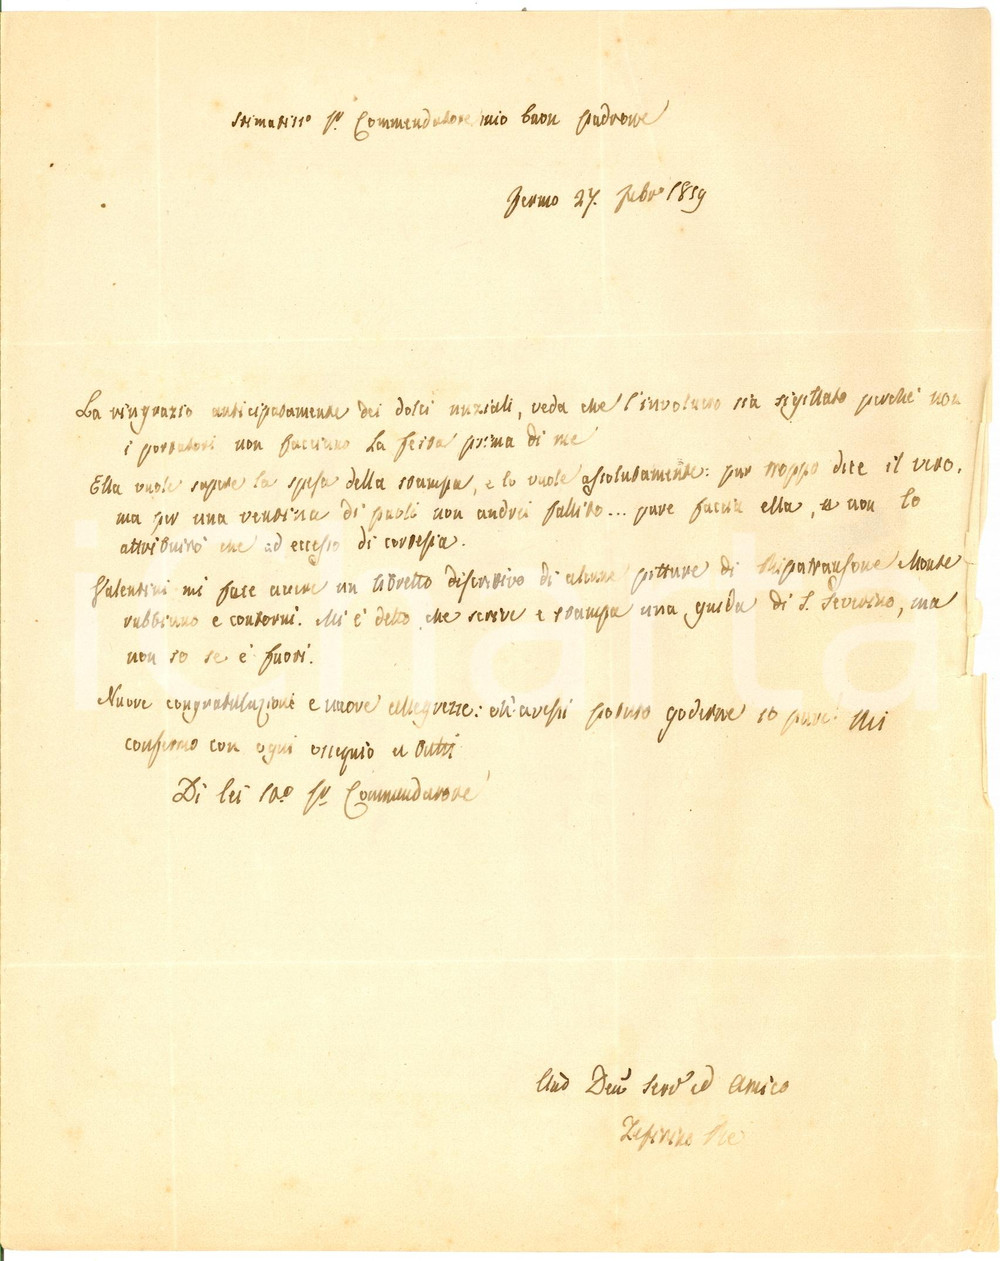 Stimatiss.o Sr. Commendatore mio buon padrone
Fermo 27. Febro 1859
La ringrazio anticipatamente dei dolci nuziali, veda che l'involucro sia sigillato perché non
i portatori non facciano la festa prima di me
Ella vuole sapere la spesa della stampa, e lo vuole assolutamente: pur troppo dice il vero.
ma per una ventina di paoli non andrei fallito... pure faccia ella, e non lo
attribuirò che ad eccesso di cortesia.
Valentini mi fece avere un libretto discritivo di alcune pitture di Ripatransone Monte
rubbiano e contorni. Mi è detto che scrive e stampa una guida di S. Severino, ma
non so se è fuori.
Nuove congratulazioni e nuove allegrezze: oh avessi potuto goderne io pure! Mi
confermo con ogni ossequio a tutti
Di lei Sr. Commendatore
Dev. Serv. ed Amico
Zefirino Re
ienalta